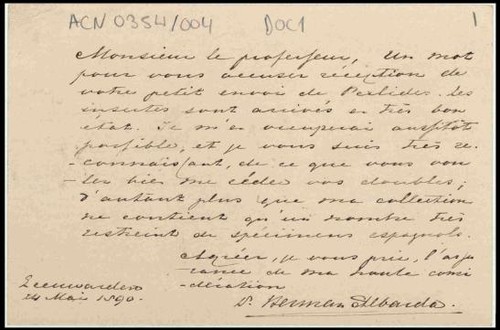 ACN 0354/004 DOC1 1
Monsieur le professeur, Un mot
pour vous accuser réception de
votre petit envoi de Perlides. Les
insectes sont arrivés en très bon
état. Je m'en occuperai aussitôt
possible, et je vous suis très re-
-connaissant, de ce que vous vou
lez bien me céder vos doubles;
d'autant plus que ma collection
ne contient qu'un nombre très
restreint de spécimens espagnols.
Agréer, je vous prie, l'assu
rance de ma haute consi
-dération
Leeuwarden
24 Mai 1890.
Dr. Herman Albarda.